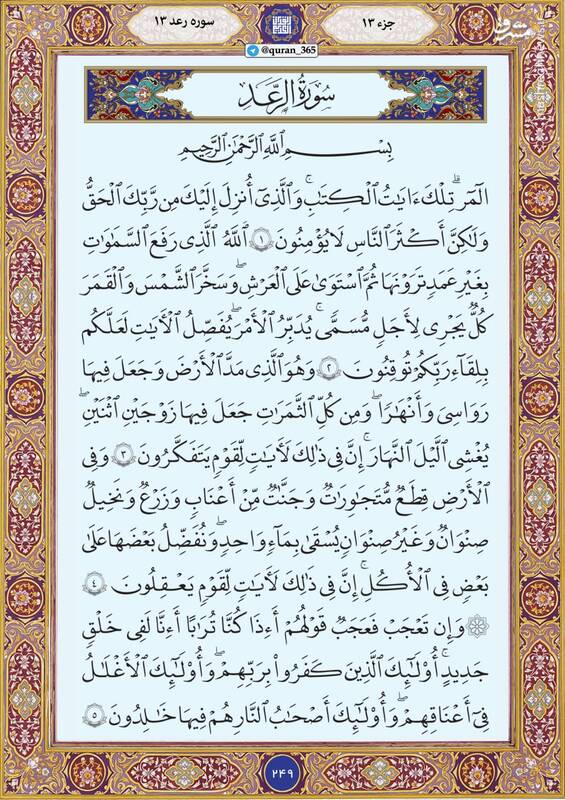 سوره رعد ۱۳
جزء ۱۳
مشرق
@quran_365
سُورَةُ الرَّعْدِ
بِسْمِ ٱللَّهِ ٱلرَّحْمَٰنِ ٱلرَّحِيمِ
الٓمٓرۚ تِلْكَ ءَايَٰتُ ٱلْكِتَٰبِۗ وَٱلَّذِىٓ أُنزِلَ إِلَيْكَ مِن رَّبِّكَ ٱلْحَقُّ
وَلَٰكِنَّ أَكْثَرَ ٱلنَّاسِ لَا يُؤْمِنُونَ ١ ٱللَّهُ ٱلَّذِى رَفَعَ ٱلسَّمَٰوَٰتِ
بِغَيْرِ عَمَدٍ تَرَوْنَهَا ثُمَّ ٱسْتَوَىٰ عَلَى ٱلْعَرْشِۖ وَسَخَّرَ ٱلشَّمْسَ وَٱلْقَمَرَ
كُلٌّ يَجْرِى لِأَجَلٍ مُّسَمًّىۚ يُدَبِّرُ ٱلْأَمْرَ يُفَصِّلُ ٱلْءَايَٰتِ لَعَلَّكُم
بِلِقَآءِ رَبِّكُمْ تُوقِنُونَ ٢ وَهُوَ ٱلَّذِى مَدَّ ٱلْأَرْضَ وَجَعَلَ فِيهَا
رَوَٰسِىَ وَأَنْهَٰرًاۖ وَمِن كُلِّ ٱلثَّمَرَٰتِ جَعَلَ فِيهَا زَوْجَيْنِ ٱثْنَيْنِۖ
يُغْشِى ٱلَّيْلَ ٱلنَّهَارَۚ إِنَّ فِى ذَٰلِكَ لَءَايَٰتٍ لِّقَوْمٍ يَتَفَكَّرُونَ ٣ وَفِى
ٱلْأَرْضِ قِطَعٌ مُّتَجَٰوِرَٰتٌ وَجَنَّٰتٌ مِّنْ أَعْنَٰبٍ وَزَرْعٌ وَنَخِيلٌ
صِنْوَانٌ وَغَيْرُ صِنْوَانٍ يُسْقَىٰ بِمَآءٍ وَٰحِدٍ وَنُفَضِّلُ بَعْضَهَا عَلَىٰ
بَعْضٍ فِى ٱلْأُكُلِۚ إِنَّ فِى ذَٰلِكَ لَءَايَٰتٍ لِّقَوْمٍ يَعْقِلُونَ ٤
۞ وَإِن تَعْجَبْ فَعَجَبٌ قَوْلُهُمْ أَءِذَا كُنَّا تُرَٰبًا أَءِنَّا لَفِى خَلْقٍ
جَدِيدٍۗ أُو۟لَٰٓئِكَ ٱلَّذِينَ كَفَرُوا۟ بِرَبِّهِمْۖ وَأُو۟لَٰٓئِكَ ٱلْأَغْلَٰلُ
فِىٓ أَعْنَاقِهِمْۖ وَأُو۟لَٰٓئِكَ أَصْحَٰبُ ٱلنَّارِۖ هُمْ فِيهَا خَٰلِدُونَ ٥
۲۴۹